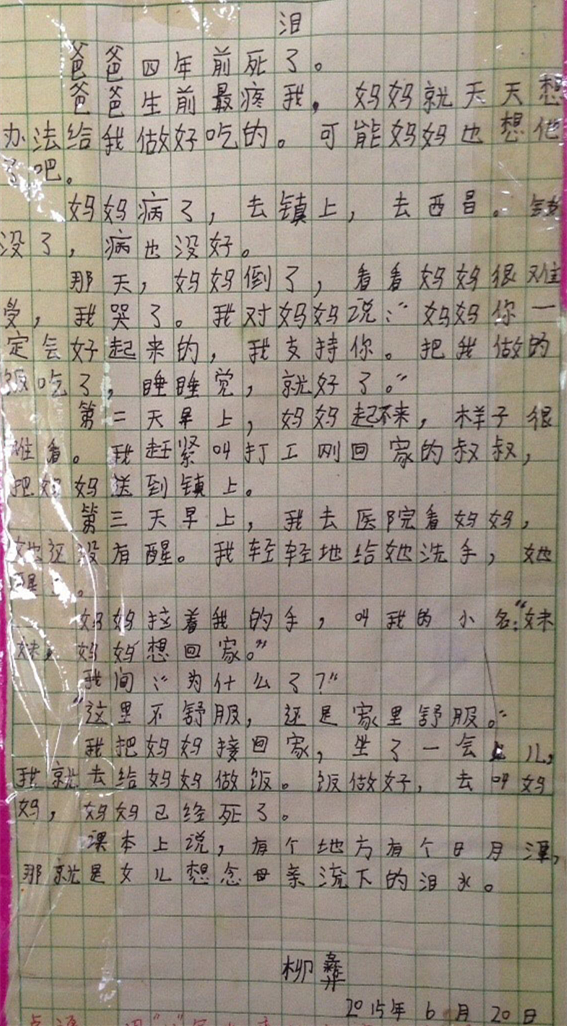 泪
爸爸四年前死了。
爸爸生前最疼我，妈妈就天天想
办法给我做好吃的。可能妈妈也想他
了吧。
妈妈病了，去镇上，去西昌。钱
没了，病也没好。
那天，妈妈倒了，看看妈妈很难
受，我哭了。我对妈妈说：“妈妈你一
定会好起来的，我支持你。把我做的
饭吃了，睡睡觉，就好了。”
第二天早上，妈妈起不来，样子很
难看。我赶紧叫打工刚回家的叔叔，
把妈妈送到镇上。
第三天早上，我去医院看妈妈，
她还没有醒。我轻轻地给她洗手，她
醒了。
妈妈拉着我的手，叫我的小名：“妹
妹，妈妈想回家。”
我问：“为什么了？”
“这里不舒服，还是家里舒服。”
我把妈妈接回家，坐了一会儿，
我就去给妈妈做饭。饭做好，去叫妈
妈，妈妈已经死了。
课本上说，有个地方有个日月潭，
那就是女儿想念母亲流下的泪水。
柳彝
2015年6月20日